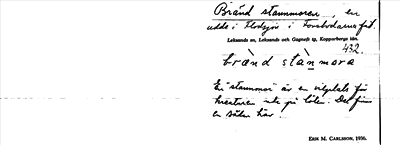 Bränd stammoren, en
udde i Flosjön i Forsbodarna fb.
Leksands sn, Leksands och Gagnefs tg, Kopparbergs län.
432.
brànd stànmora
En "stammor" är en viloplats för
kreaturen ute på löten. Det finns
en sådan här.
ERIK M. CARLSSON, 1930.